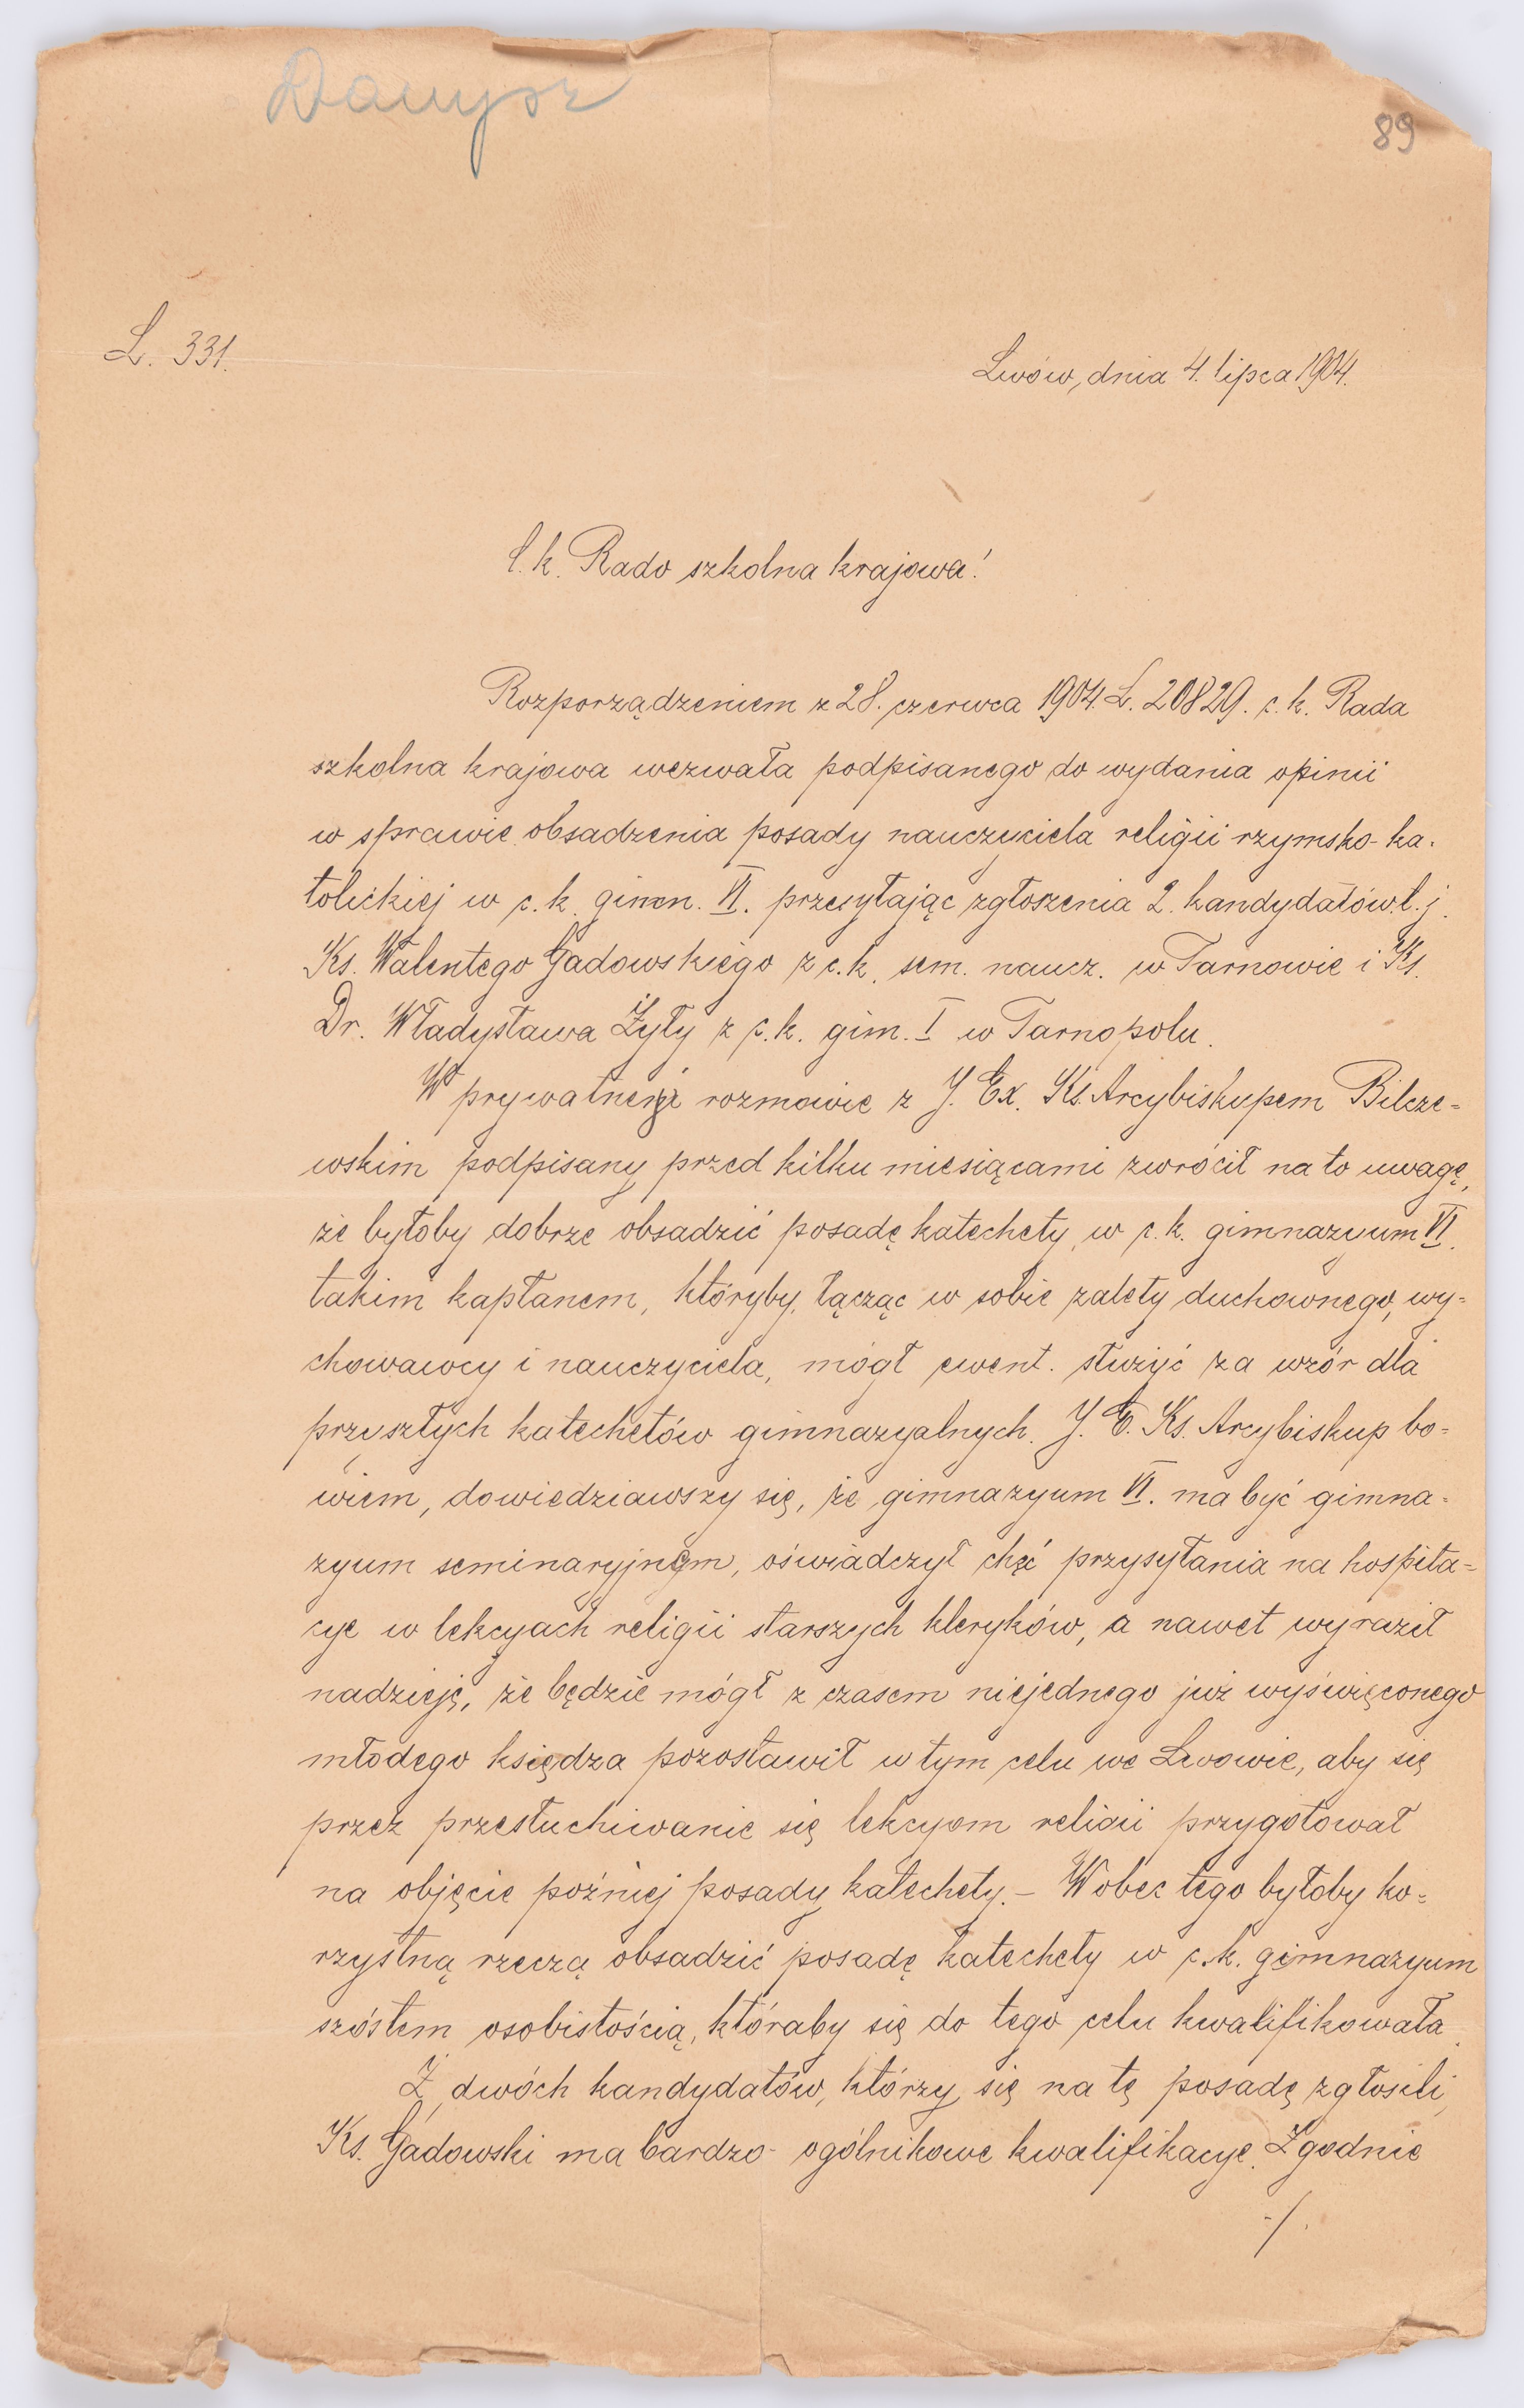 Danysz
89
L. 331.
Lwów, dnia 4. lipca 1904.
C. k. Rado szkolna krajowa!
Rozporządzeniem z 28. czerwca 1904. L. 20829. c. k. Rada
szkolna krajowa wezwała podpisanego do wydania opinii
w sprawie obsadzenia posady nauczyciela religii rzymsko-ka-
tolickiej w c. k. gimn. VI. przesyłając zgłoszenia 2. kandydatów t. j.
Ks. Walentego Gadowskiego z c. k. sem. naucz. w Tarnowie i Ks.
Dr. Władysława Żyły z c. k. gim. I w Tarnopolu.
W prywatnej rozmowie z J. Ex. Ks. Arcybiskupem Bilcze-
wskim podpisany przed kilku miesiącami zwrócił na to uwagę,
że byłoby dobrze obsadzić posadę katechety w c. k. gimnazyum VI.
takim kapłanem, któryby, łącząc w sobie zalety duchownego, wy-
chowawcy i nauczyciela, mógł ewent. służyć za wzór dla
przyszłych katechetów gimnazyalnych. J. E. Ks. Arcybiskup bo-
wiem, dowiedziawszy się, że gimnazyum VI. ma być gimna-
zyum seminaryjnem, oświadczył chęć przysyłania na hospita-
cye w lekcyach religii starszych kleryków, a nawet wyraził
nadzieję, że będzie mógł z czasem niejednego już wyświęconego
młodego księdza pozostawił w tym celu we Lwowie, aby się
przez przesłuchiwanie się lekcyom religii przygotował
na objęcie poźniej posady katechety. – Wobec tego byłoby ko-
rzystną rzeczą obsadzić posadę katechety w c. k. gimnazyum
szóstem osobistością, któraby się do tego celu kwalifikowała.
Z dwóch kandydatów, którzy się na tę posadę zgłosili,
Ks. Gadowski ma bardzo ogólnikowe kwalifikacye. Zgodnie
-/.